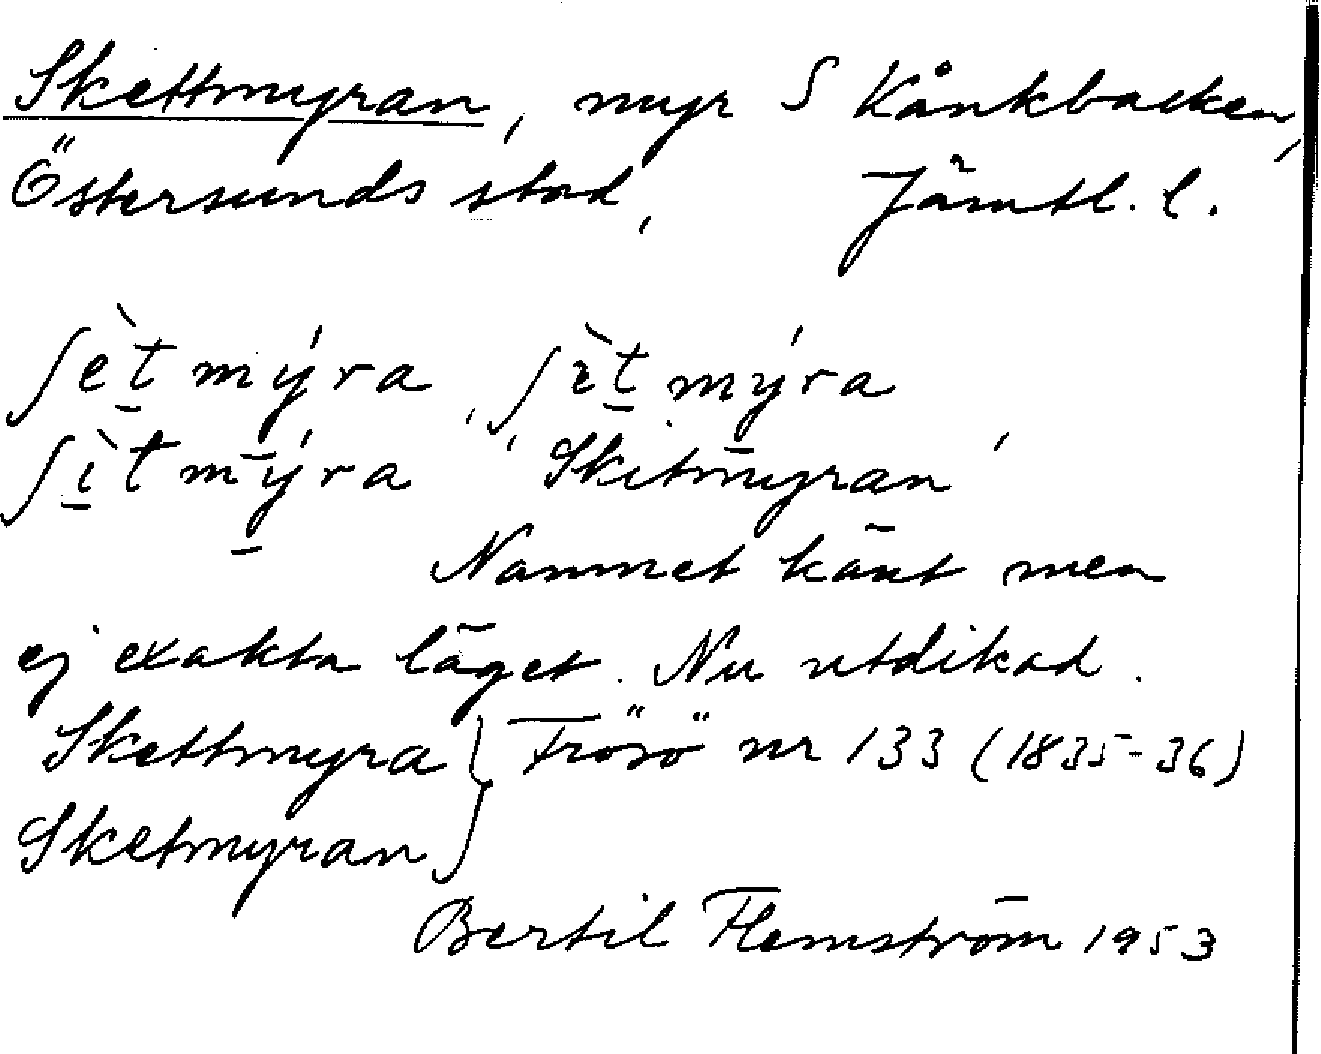 Skettmyran, myr S Kånkbacken,
Östersunds stad, Jämtl. l.
ʃèt̲mý̲ra, ʃɛ̀t̲mý̲ra,
ʃì̲tmý̲ra, Skitmyran,
Namnet känt men
ej exakta läget. Nu utdikad.
Skettmyra } Frösö nr 133 (1835-36)
Sketmyran
Bertil Flemström 1953